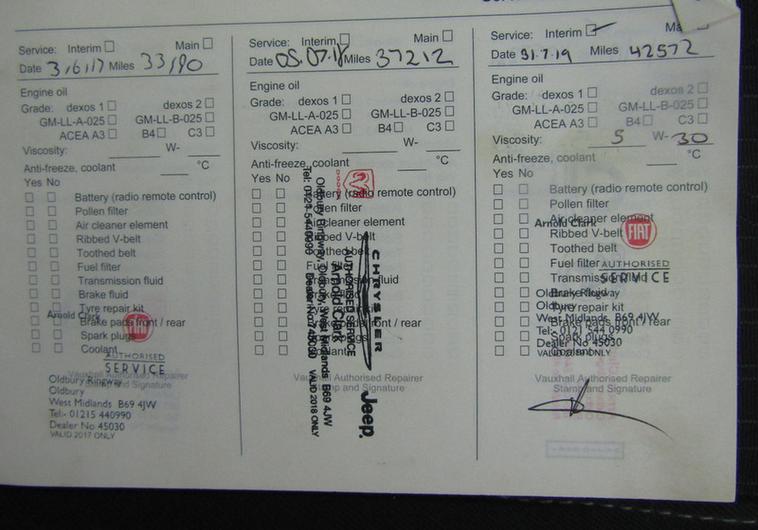 Service: Interim ☐ Main ☐
Date 3/6/17 Miles 33190
Engine oil
Grade: dexos 1 ☐ dexos 2 ☐
GM-LL-A-025 ☐ GM-LL-B-025 ☐
ACEA A3 ☐ B4 ☐ C3 ☐
Viscosity: W-
Anti-freeze, coolant °C
Yes No
Battery (radio remote control)
Pollen filter
Air cleaner element
Ribbed V-belt
Toothed belt
Fuel filter
Transmission fluid
Brake fluid
Tyre repair kit
Brake pads front / rear
Spark plugs
Coolant
Arnold Clark
FIAT
AUTHORISED
SERVICE
Vauxhall Authorised Repairer
Stamp and Signature
Oldbury Ringway
Oldbury
West Midlands B69 4JW
Tel:- 01215 440990
Dealer No 45030
VALID 2017 ONLY
Service: Interim ☐ Main ☐
Date 05.07.18 Miles 37212
Engine oil
Grade: dexos 1 ☐ dexos 2 ☐
GM-LL-A-025 ☐ GM-LL-B-025 ☐
ACEA A3 ☐ B4 ☐ C3 ☐
Viscosity: W-
Anti-freeze, coolant °C
Yes No
Battery (radio remote control)
Pollen filter
Air cleaner element
Ribbed V-belt
Toothed belt
CHRYSLER
Jeep
AUTHORISED SERVICE
Arnold Clark
Oldbury Ringway, Oldbury, West Midlands B69 4JW
VALID 2018 ONLY
Vauxhall Authorised Repairer
Stamp and Signature
Service: Interim ☑ Main
Date 31.7.19 Miles 42572
Engine oil
Grade: dexos 1 ☐ dexos 2 ☐
GM-LL-A-025 ☐ GM-LL-B-025 ☐
ACEA A3 ☐ B4 ☐ C3 ☐
Viscosity: 5 W- 30
Anti-freeze, coolant °C
Yes No
Battery (radio remote control)
Pollen filter
Air cleaner element
Ribbed V-belt
Toothed belt
Fuel filter
Transmission fluid
Brake fluid
Tyre repair kit
Brake pads front / rear
Spark plugs
Arnold Clark
FIAT
AUTHORISED
SERVICE
Oldbury Ringway
Oldbury
West Midlands B69 4JW
Tel:- 0121 544 0990
Dealer No 45030
Vauxhall Authorised Repairer
Stamp and Signature